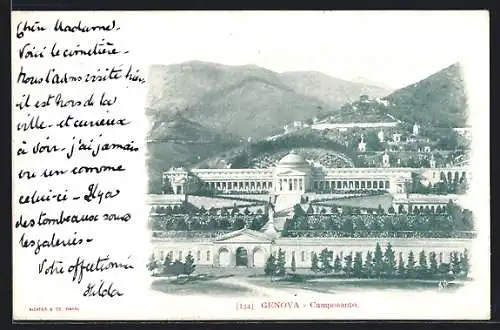 Chère Madame -
Voici le cimetière -
nous l'avons visité hier,
il est hors de la
ville - et curieux
à voir. j'ai jamais
vu un comme
celui-ci - Il y a
des tombeaux sous
les galeries -
Votre affection
Hilda
[134] GENOVA - Camposanto.